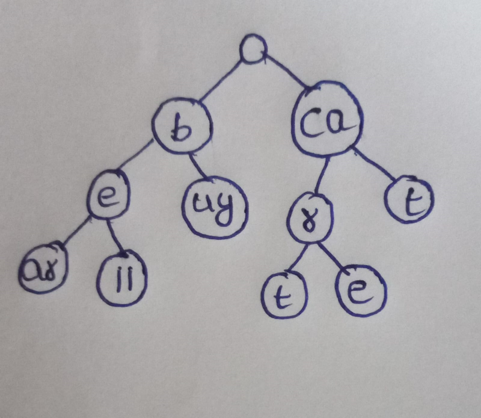 b ca
e uy r t
ar ll t e